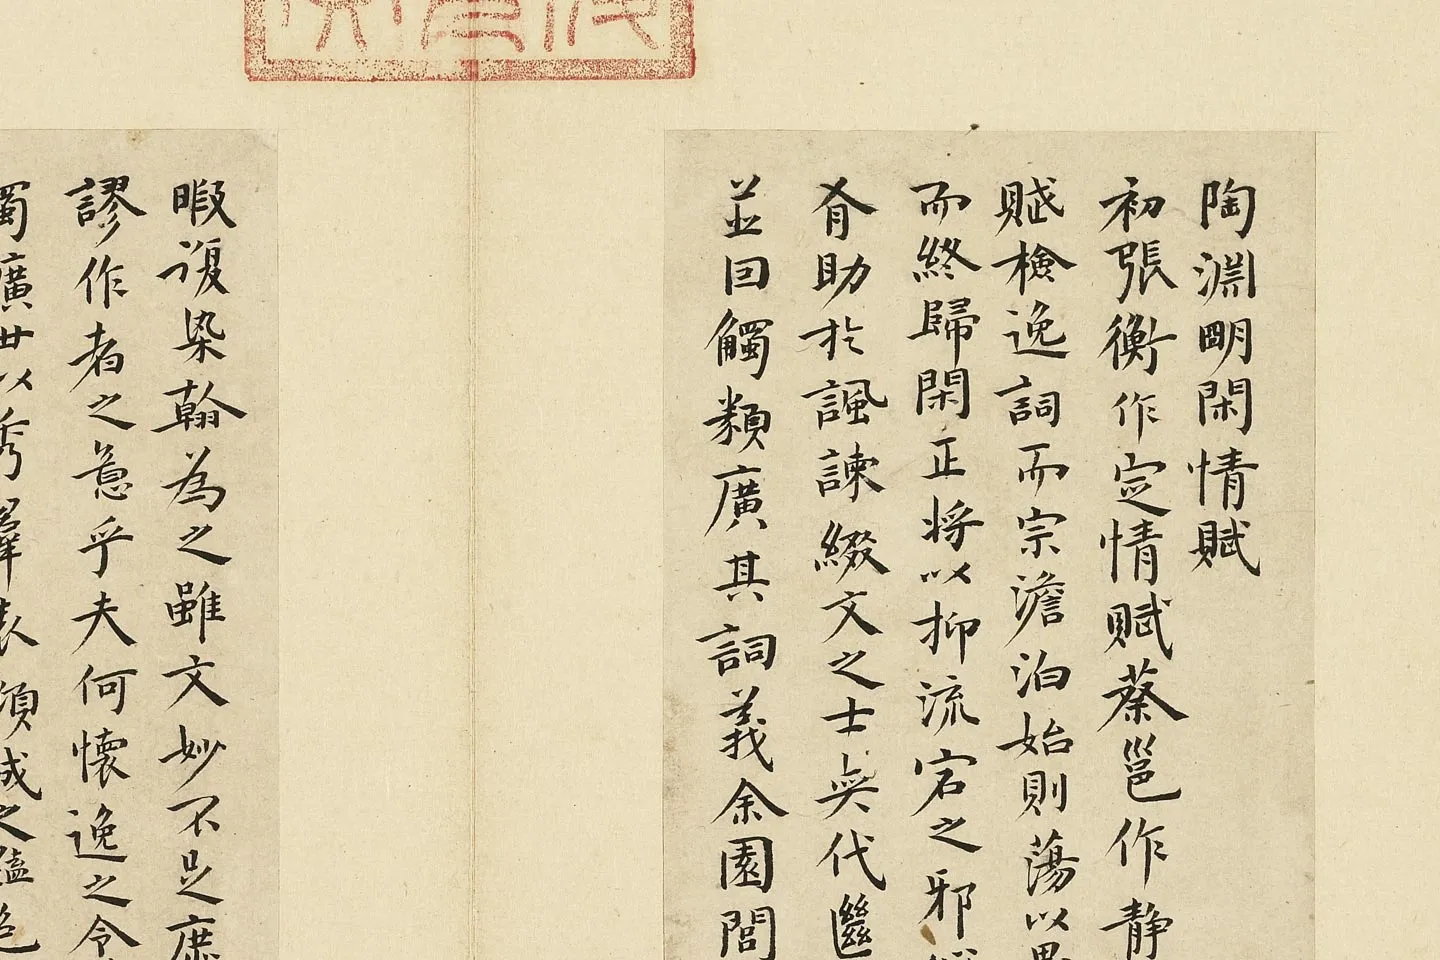 陶淵明閑情賦
初張衡作定情賦蔡邕作静
賦檢逸詞而宗澹泊始則蕩以思
而終歸閑正将以抑流宕之邪
有助於諷諫綴文之士奕代繼
並因觸類廣其詞義余園閭
暇復染翰為之雖文妙不足庶
謬作者之意乎夫何懷逸之令
獨廣世以秀羣表傾城之豔色